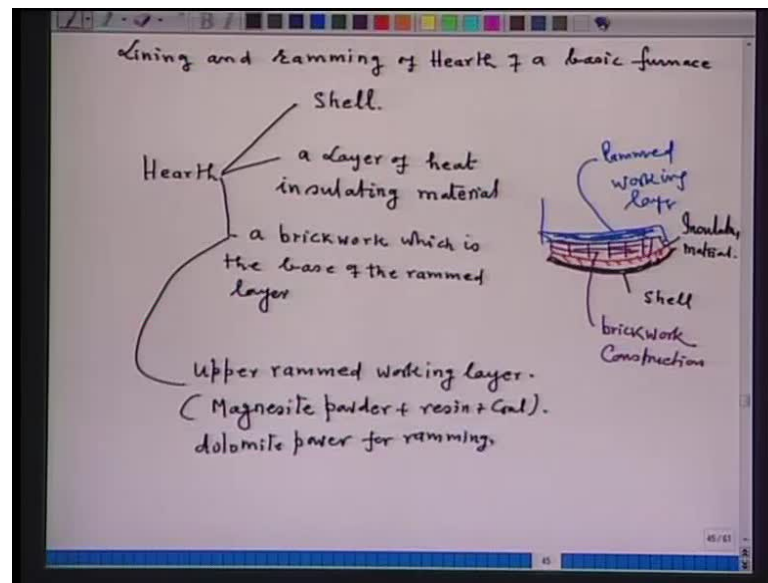 Lining and ramming of Hearth of a basic furnace
Shell.
Hearth
a Layer of heat
insulating material
a brickwork which is
the base of the rammed
layer
Upper rammed working layer.
(Magnesite powder + resin + Coal).
dolomite power for ramming,
Rammed
working
layer
material.
Shell
brickwork
Construction
45/61
45